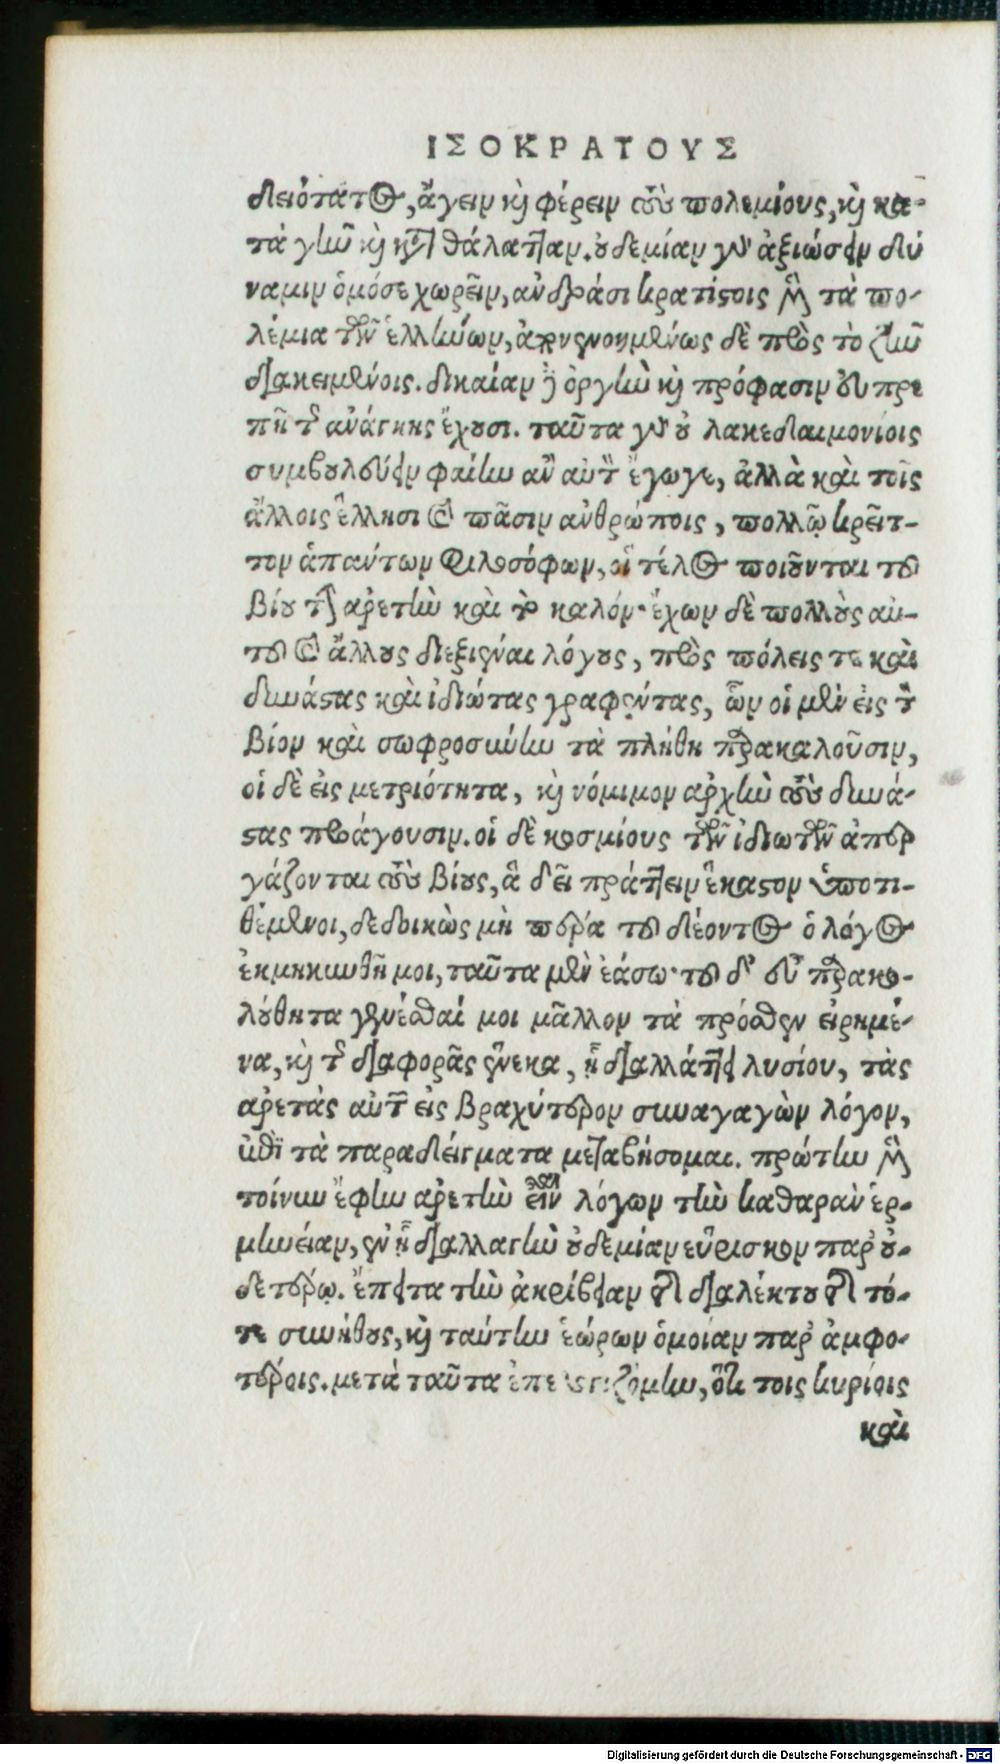 ΙΣΟΚΡΑΤΟΥΣ
δειότατος, ἄγειν καὶ φέρειν τοὺς πολεμίους, καὶ κα-
τὰ γῆν καὶ κατὰ θάλατταν. οὐδεμίαν γὰρ ἀξιώσειν δύ
ναμιν ὁμόσε χωρεῖν, ἀνδράσι κρατίστοις μὲν τὰ πο-
λέμια τῶν ἑλλήνων, ἀπονενοημένως δὲ πρὸς τὸ ζῆν
διακειμένοις. δικαίαν δὲ ὀργὴν καὶ πρόφασιν εὐπρε
πῆ τῆς ἀνάγκης ἔχουσι. ταῦτα γὰρ οὐ λακεδαιμονίοις
συμβουλεύειν φαίην ἂν αὐτὸν ἔγωγε, ἀλλὰ καὶ τοῖς
ἄλλοις ἕλλησι καὶ πᾶσιν ἀνθρώποις, πολλῷ κρεῖτ-
τον ἁπάντων φιλοσόφων, οἳ τέλος ποιοῦνται τοῦ
βίου τὴν ἀρετὴν καὶ τὸ καλόν· ἔχων δὲ πολλοὺς αὐ-
τοῦ καὶ ἄλλους διεξιέναι λόγους, πρὸς πόλεις τε καὶ
δυνάστας καὶ ἰδιώτας γραφέντας, ὧν οἱ μὲν εἰς τὸν
βίον καὶ σωφροσύνην τὰ πλήθη παρακαλοῦσιν,
οἱ δὲ εἰς μετριότητα, καὶ νόμιμον ἀρχὴν τοὺς δυνά-
στας προάγουσιν. οἱ δὲ κοσμίους τῶν ἰδιωτῶν ἀπερ
γάζονται τοὺς βίους, ἃ δεῖ πράττειν ἕκαστον ὑποτι-
θέμενοι, δεδοικὼς μὴ πέρα τοῦ δέοντος ὁ λόγος
ἐκμηκυνθῇ μοι, ταῦτα μὲν ἐάσω· τοῦ δ' εὐπαρακο-
λούθητα γενέσθαί μοι μᾶλλον τὰ πρόσθεν εἰρημέ-
να, καὶ τῆς διαφορᾶς ἕνεκα, ᾗ διαλλάττει λυσίου, τὰς
ἀρετὰς αὐτῶν εἰς βραχύτερον συναγαγὼν λόγον,
ἐπὶ τὰ παραδείγματα μεταβήσομαι. πρώτην μὲν
τοίνυν ἔφην ἀρετὴν εἶναι λόγων τὴν καθαρὰν ἑρ-
μηνείαν, ἐν ᾗ διαλλαγὴν οὐδεμίαν εὕρισκον παρ' οὐ-
δετέρῳ. ἔπειτα τὴν ἀκρίβειαν τῆς διαλέκτου τῆς τό-
τε συνήθους, καὶ ταύτην ἑώρων ὁμοίαν παρ' ἀμφο-
τέροις. μετὰ ταῦτα ὅτι τοις κυρίοις
καὶ
Digitalisierung gefördert durch die Deutsche Forschungsgemeinschaft - DFG